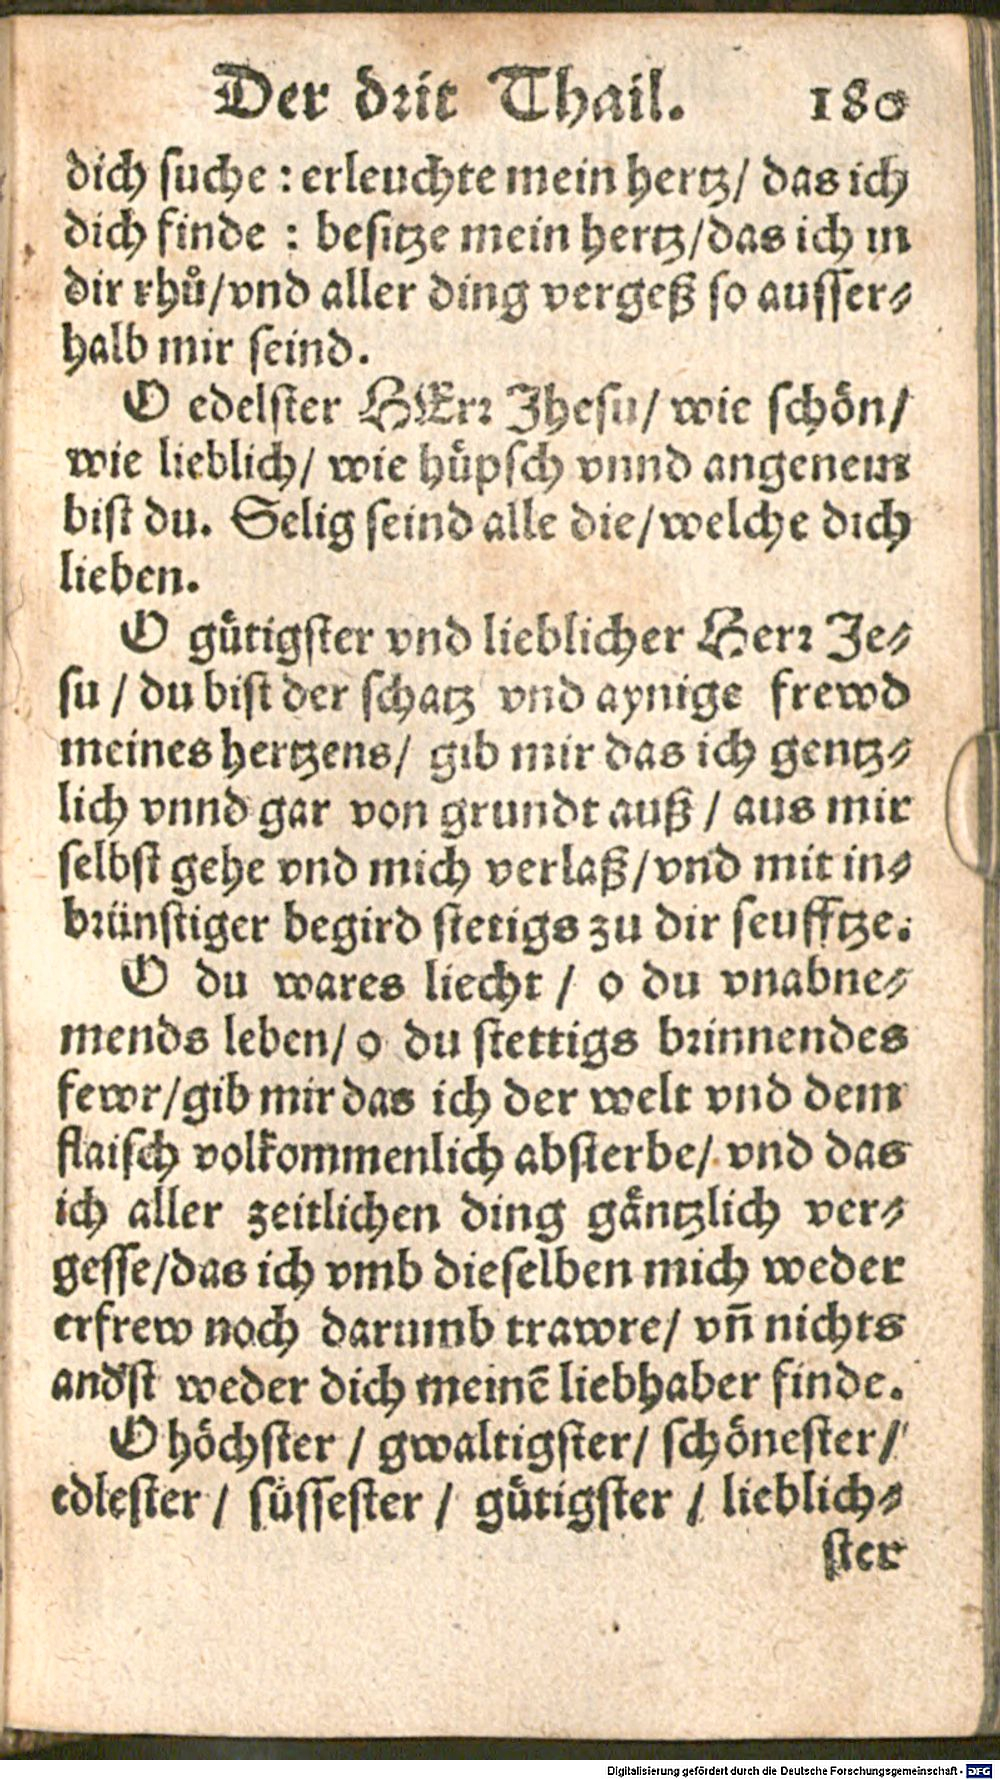 Der drit Thail. 180
dich suche : erleuchte mein hertz/ das ich
dich finde : besitze mein hertz/das ich in
dir rhuͦ/vnd aller ding vergeß so ausser⸗
halb mir seind.
O edelster HErr Jhesu/ wie schoͤn/
wie lieblich/ wie huͤpsch vnnd angenem
bist du. Selig seind alle die/welche dich
lieben.
O guͤtigster vnd lieblicher Herr Je⸗
su / du bist der schatz vnd aynige frewd
meines hertzens/ gib mir das ich gentz⸗
lich vnnd gar von grundt auß / aus mir
selbst gehe vnd mich verlaß/vnd mit in⸗
brünstiger begird stetigs zu dir seufftze.
O du wares liecht / o du vnabne⸗
mends leben/ o du stettigs brinnendes
fewr/gib mir das ich der welt vnd dem
flaisch volkommenlich absterbe/ vnd das
ich aller zeitlichen ding gaͤntzlich ver⸗
gesse/das ich vmb dieselben mich weder
erfrew noch darumb trawre/ vn̄ nichts
andʼst weder dich meinē liebhaber finde.
O hoͤchster / gwaltigster/ schoͤnester/
edlester / suͤssester / guͤtigster / lieblich⸗
ster
Digitalisierung gefördert durch die Deutsche Forschungsgemeinschaft - DFG